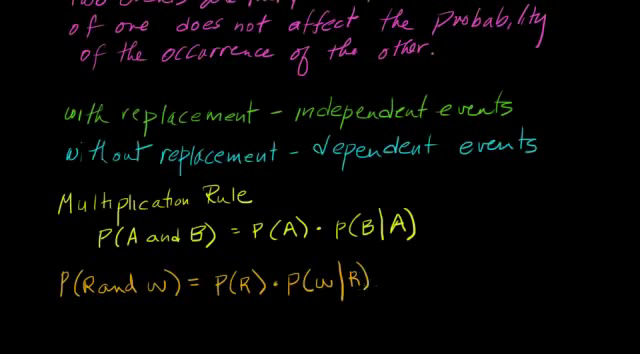 of one does not affect the probability
of the occurrence of the other.
with replacement - independent events
without replacement - dependent events
Multiplication Rule
P(A and B) = P(A) · P(B|A)
P(R and W) = P(R) · P(W|R)